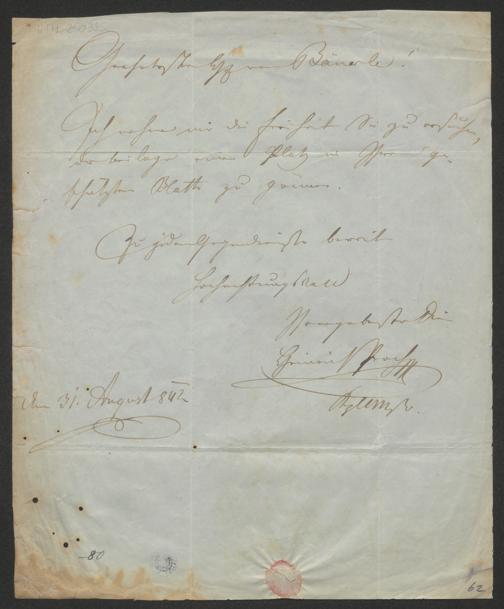 Geehrtester H. von Bäuerle!
Ich nehme mir die Freiheit Sie zu ersuchen,
der Beilage einen Platz in Ihrem ge-
schätzten Blatte zu gönnen.
Zu jedem Gegendienste bereit
Hochachtungsvoll
Ihr ergebenster Diener
Heinrich Proch
Kpllmstr.
Am 31. August 842
80
62